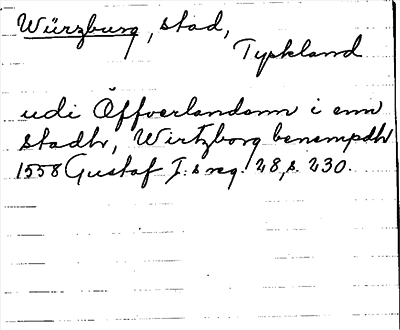 Würzburg, stad,
Tyskland
udi Öffverlandom i enn
stadh, Wirtzborg benempdh
1558 Gustaf I:s reg. 28, s. 230.